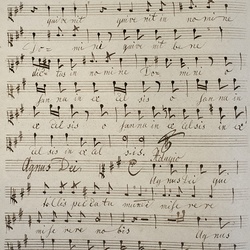 qui ve nit qui ve nit in no mi ne
Do mi ni qui ve nit be ne
dic tus in no mi ne Do mi ni o
san na in ex cel sis o san na in
ex cel sis o san na in ex cel sis in ex
cel sis in ex cel sis.
Agnus Dei Adagio
Agnus Dei qui
tolis pec ca ta mundi mi se re re
mi se re re no bis Agnus